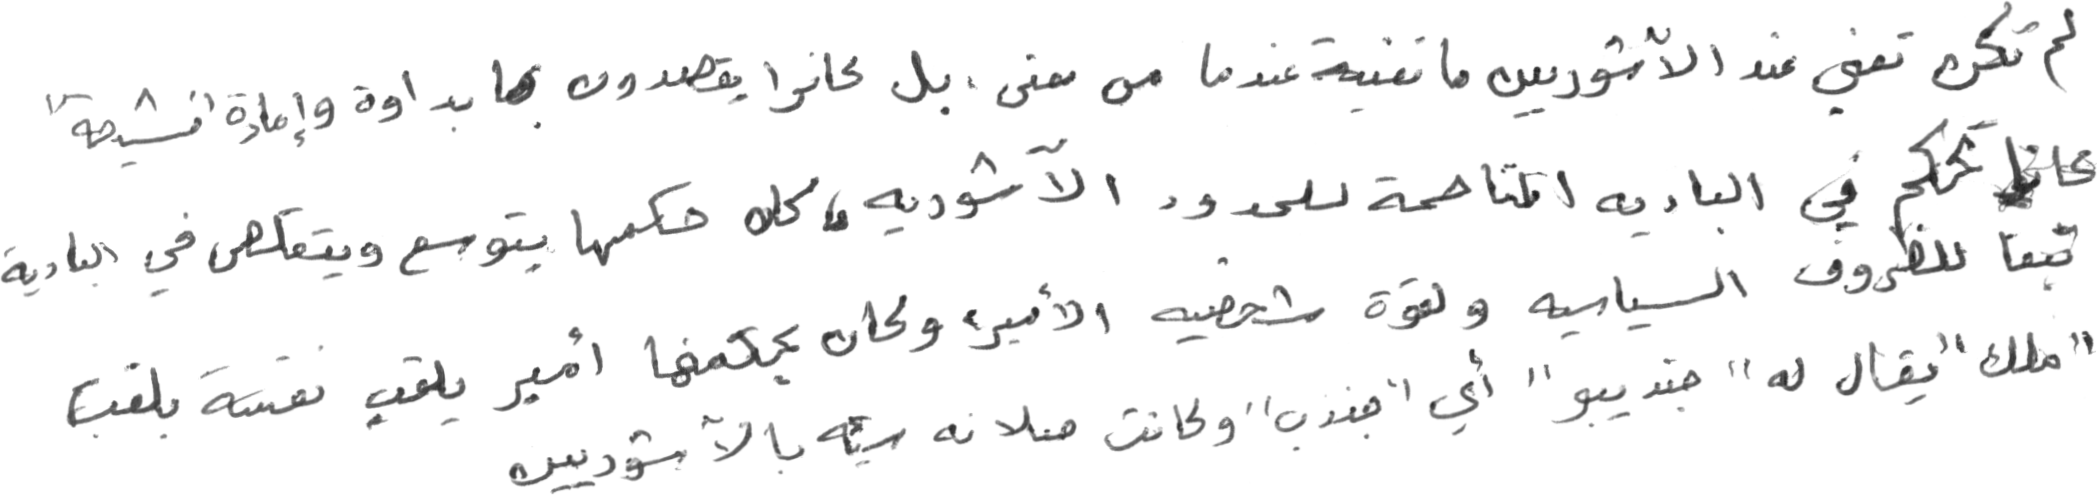 لم تكن تعني عند الآشوريين ما تعنيه عندنا من معنى، بل كانوا يقصدون بها بداوة وإمارة "مشيخة"
كانت تحكم في الباديه المتاخمة للحدود الآشوريه، كان حكمها يتوسع ويتقلص في البادية
تبعا للظروف السياسيه ولقوة شخصيه الأمير، وكان يحكمها أمير يلقب نفسه بلقب
"ملك" يقال له "جنديبو" أي "جندب" وكانت صلاته سيئه بالآشوريين